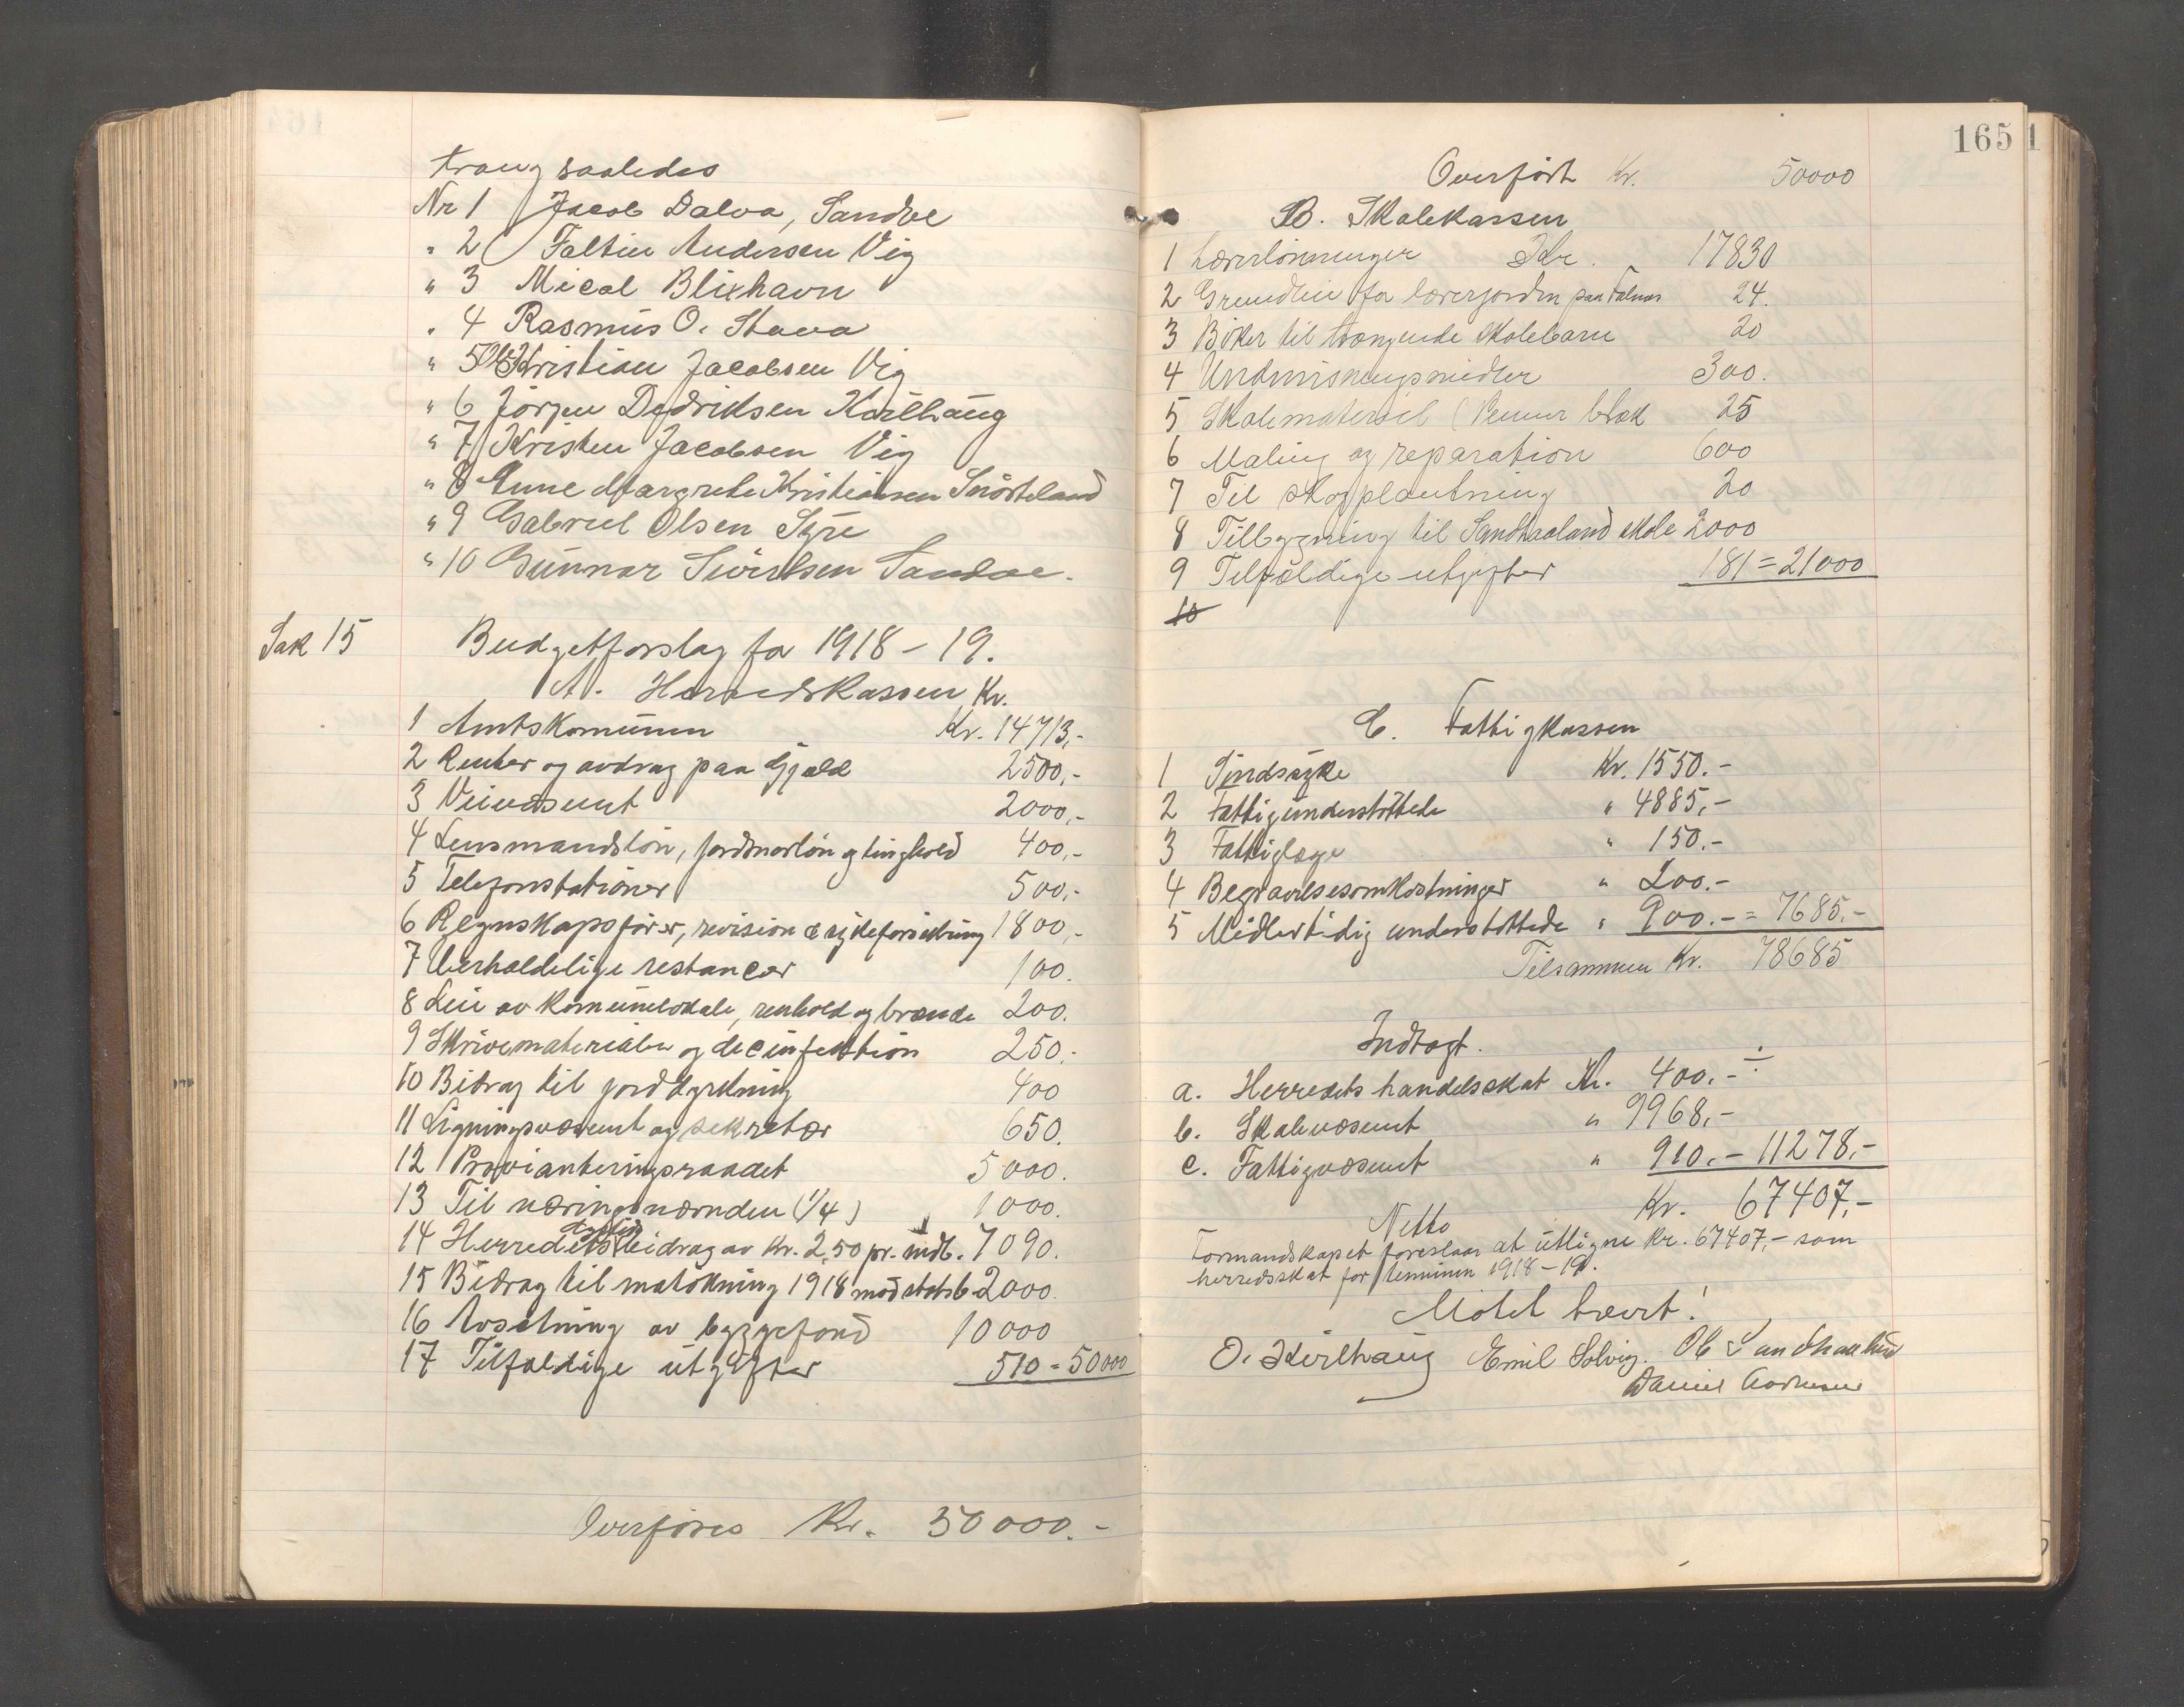 trang saaledes
Nr 1 Jacob Dalva, Sandve
" 2 Faltin Andersen Vig
" 3 Mical Blixhavn
" 4 Rasmus O. Stava
" 5 Kristian Jacobsen Vig
" 6 Jörgen Dedriksen Kvilhaug
" 7 Kristen Jacobsen Vig
" 8 Anne Margrete Kristiansen Snörteland
" 9 Gabriel Olsen Syre
" 10 Gunnar Sivertsen Sandve.
Sak 15 Budgetforslag for 1918-19.
A. Herredskassen Kr.
1 Amtskomunen Kr. 14713,-
2 Renter og avdrag paa Gjæld 2500,-
3 Veivæsenet 2000,-
4 Lensmandslön, jordmorlön og tinghold 400,-
5 Telefonstationer 500,-
6 Regnskapsförer, revision & sykeforsikring 1800,-
7 Uerholdelige restancer 100.
8 Leie av komunelokale, renhold og brænde 200.
9 Skrivematerialer og decinfektion 250.-
10 Bidrag til jorddyrkning 400
11 Ligningsvæsenet og sekretær 650.
12 Provianteringsraadet 5000.
13 Til næringsnævnden (1/4) 1000.
14 Herredets dyrtids bidrag av Kr. 2,50 pr. indb. 7090.
15 Bidrag til matökning 1918 mod statsb. 2000.
16 Avsetning av byggefond 10000
17 Tilfældige utgifter 510 = 50000
Overföres Kr. 50000.-
165
Overfört Kr. 50000
B. Skolekassen
1 Lærerlönninger Kr. 17830
2 Grundleie for lærerjorden paa Falnes 24.
3 Böker til trængende skolebarn 20
4 Undervisningsmidler 300.
5 Skolemateriel (Penner blæk 25
6 Maling og reparation 600
7 Til skogplantning 20
8 Tilbygning til Sandhaaland skole 2000
9 Tilfældige utgifter 181 = 21000
10
C. Fattigkassen
1 Sindsyke Kr. 1550.-
2 Fattigunderstöttede " 4885,-
3 Fattiglæge " 150.-
4 Begravelsesomkostninger " 200.-
5 Midlertidig understöttede " 900.- = 7685.-
Tilsammen Kr. 78685
Indtægt.
a. Herredets handelsskat Kr. 400.- ÷
b. Skolevæsenet " 9968,-
c. Fattigvæsenet " 910.- 11278,-
Netto Kr. 67407,-
Formandskapet foreslaar at utligne Kr. 67407,- som
herredsskat for terminen 1918-19.
Mötet hævet!
O. Kvilhaug Emil Solvig. Ol Sandhaaland
Daniel